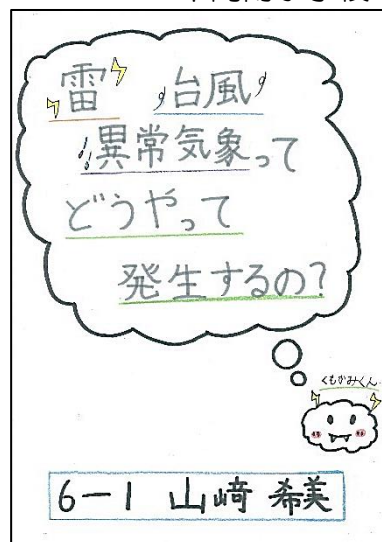 雷 台風
異常気象って
どうやって
発生するの?
くもがみくん
6-1 山﨑 希美